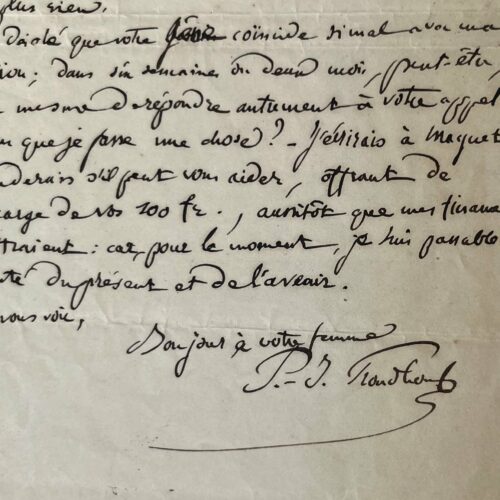 plus rien.
décolé que votre coïncide si mal avec ma
dans six semaines ou deux mois, peut-être,
même de répondre autrement à votre appel
que je fasse une chose ? – J'écrirais à Maquet
s'il peut vous aider, offrant de
de vos 100 fr., aussitôt que mes finan
: car, pour le moment, je suis passable
du présent et de l'avenir.
vous voir,
Bonjour à votre femme
P.-J. Proudhon